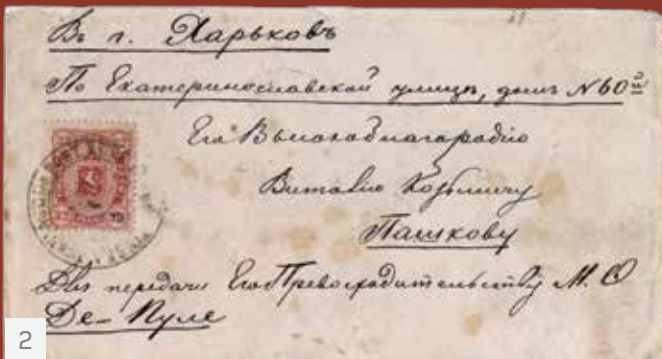 Въ г. Харьковъ
По Екатеринославской улицѣ, домъ N 60й
Его Высокоблагородію
Виталію Козьмичу
Пашкову
Для передачи Его Превосходительству М. Ѳ
Де-Пуле
2